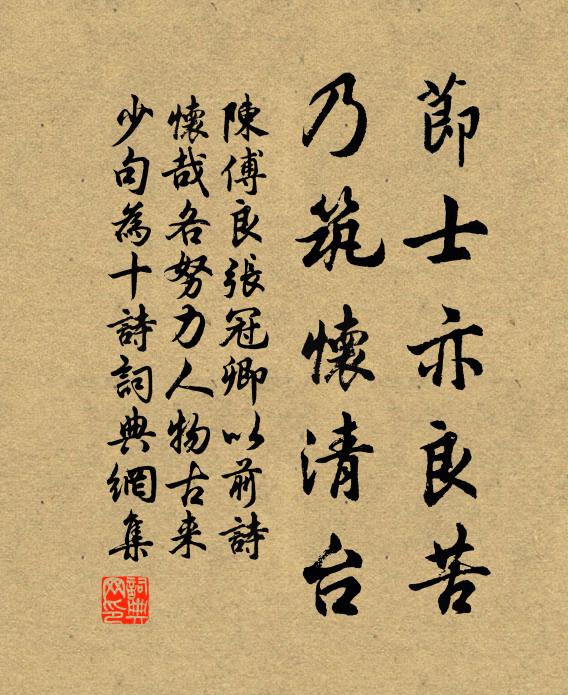 節士亦良苦
乃筑懷清台
陳傅良張冠卿以前詩
懷哉各努力人物古来
少句為十詩詞典網集
詞典网印